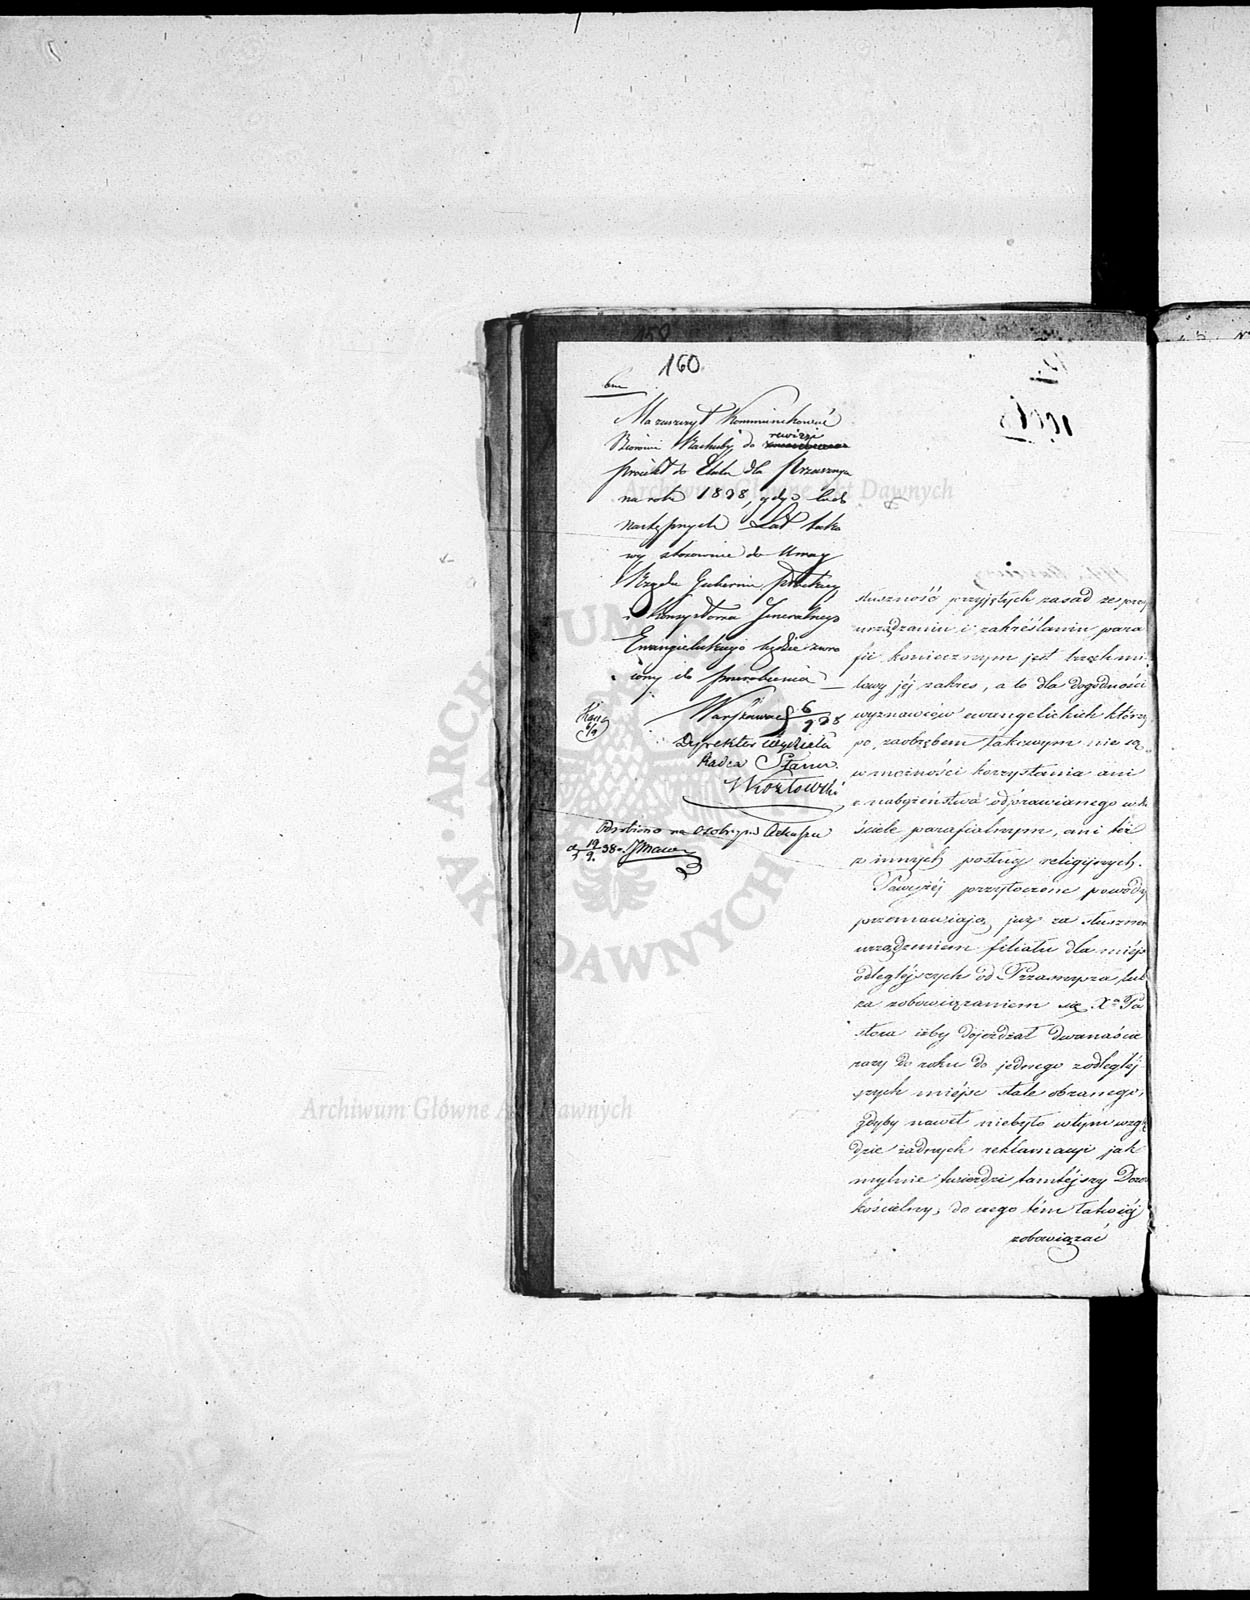 160
bm
Ma zaszczyt Kommunikować
do rewizji
projekt do Etatu dla Przasnysza
na rok 1838, gdyż
następnych Lat
wy stosownie do Uwag
Rządu Gubernii Płockiej
i Konsystorza Jeneralnego
Ewangielickiego będzie zwro
cony do przerobienia
Warszawa d 6/9 838
Dyrektor Wydziału
Radca Stanu
Kozłowski
Odrobiono na osobnym Arkuszu
d 19/9. 38
słuszność przyjętych zasad że przy
urządzaniu i zakreślaniu para
fii koniecznym jest trzech mi
lowy jéj zakres, a to dla dogodności
wyznawców ewangelickich którzy
po zaobrębem takowym nie są
w możności korzystania ani
z nabożeństwa odprawianego w ko
ściele parafialnym, ani też
z innych posług religijnych.
Powyżéj przytoczone powody
przemawiają już za słusznem
urządzeniem filiału dla miejsc
odległéjszych od Przasnysza, lub
za zobowiązaniem się Xa Pa
stora iżby dojeżdżał dwanaście
razy do roku do jednego z odległéj
szych miéjsc stale obranego,
gdyby nawet niebyło w tym wzglę
dzie żadnych reklamacyi jak
mylnie twierdzi tamtéjszy Dozór
kościelny, do czego tém łatwiéj
zobowiązać
Archiwum Główne Akt Dawnych
Archiwum Główne Akt Dawnych